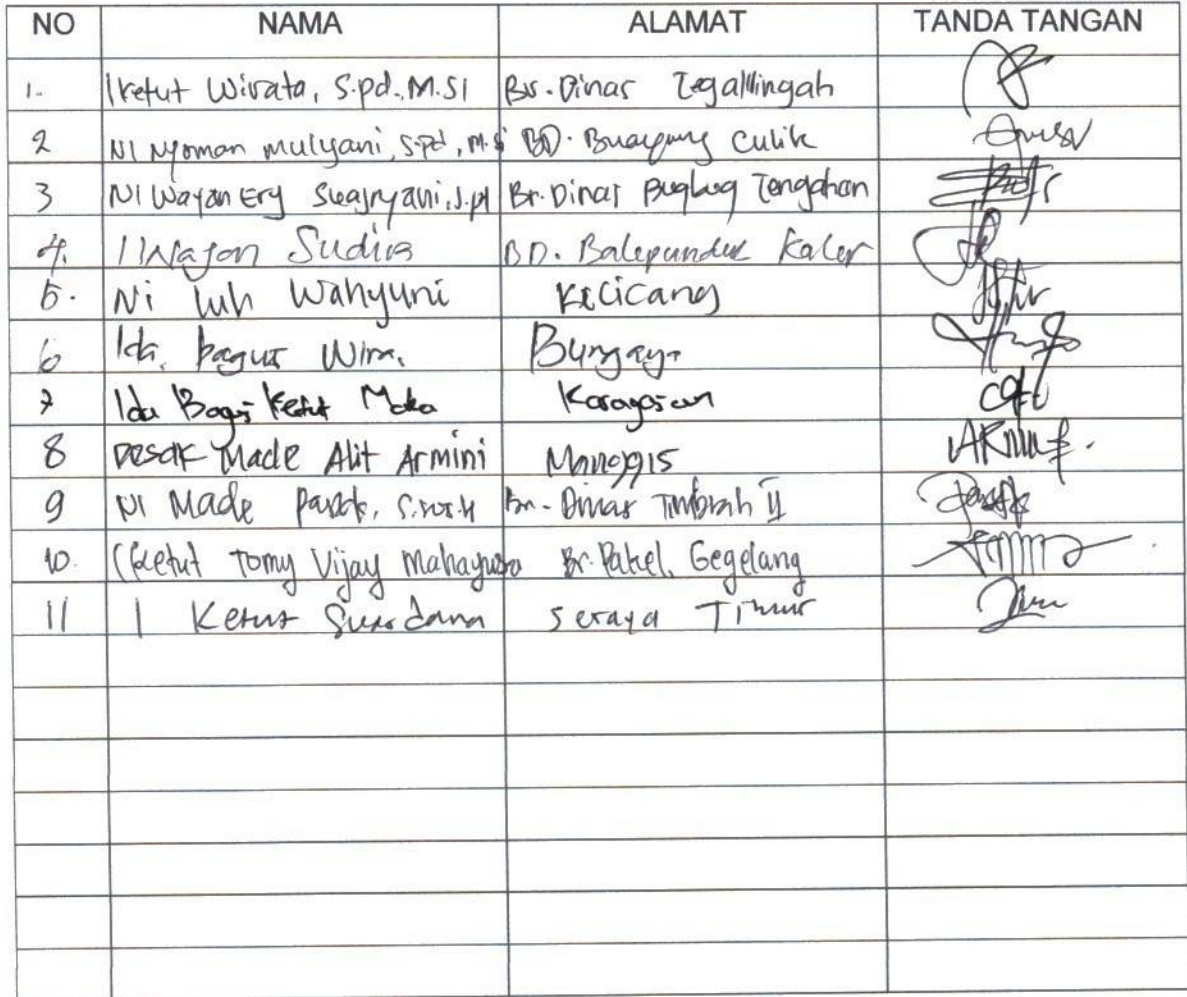 NO NAMA ALAMAT TANDA TANGAN
1. I Ketut Wirata, S.pd., M.SI Br. Dinas Tegallingah
2 NI Nyoman mulyani, S.Pd, M.Si BD. Buayang Culik
3 NI Wayan Ery Br. Dinas Bugbug Tengahan
4. I Wayan Sudira BD. Balepunduk Kaler
5. Ni luh Wahyuni Kecicang
6 Ida bagus Wira. Bungaya
7 Ida Bagus Ketut Karangasem
8 Desak Made Alit Armini Manggis
9 NI Made Br. Dinas Timbrah II
10. I Ketut Tomy Vijay Br. Pakel, Gegelang
11 I Ketut Suardana Seraya Timur